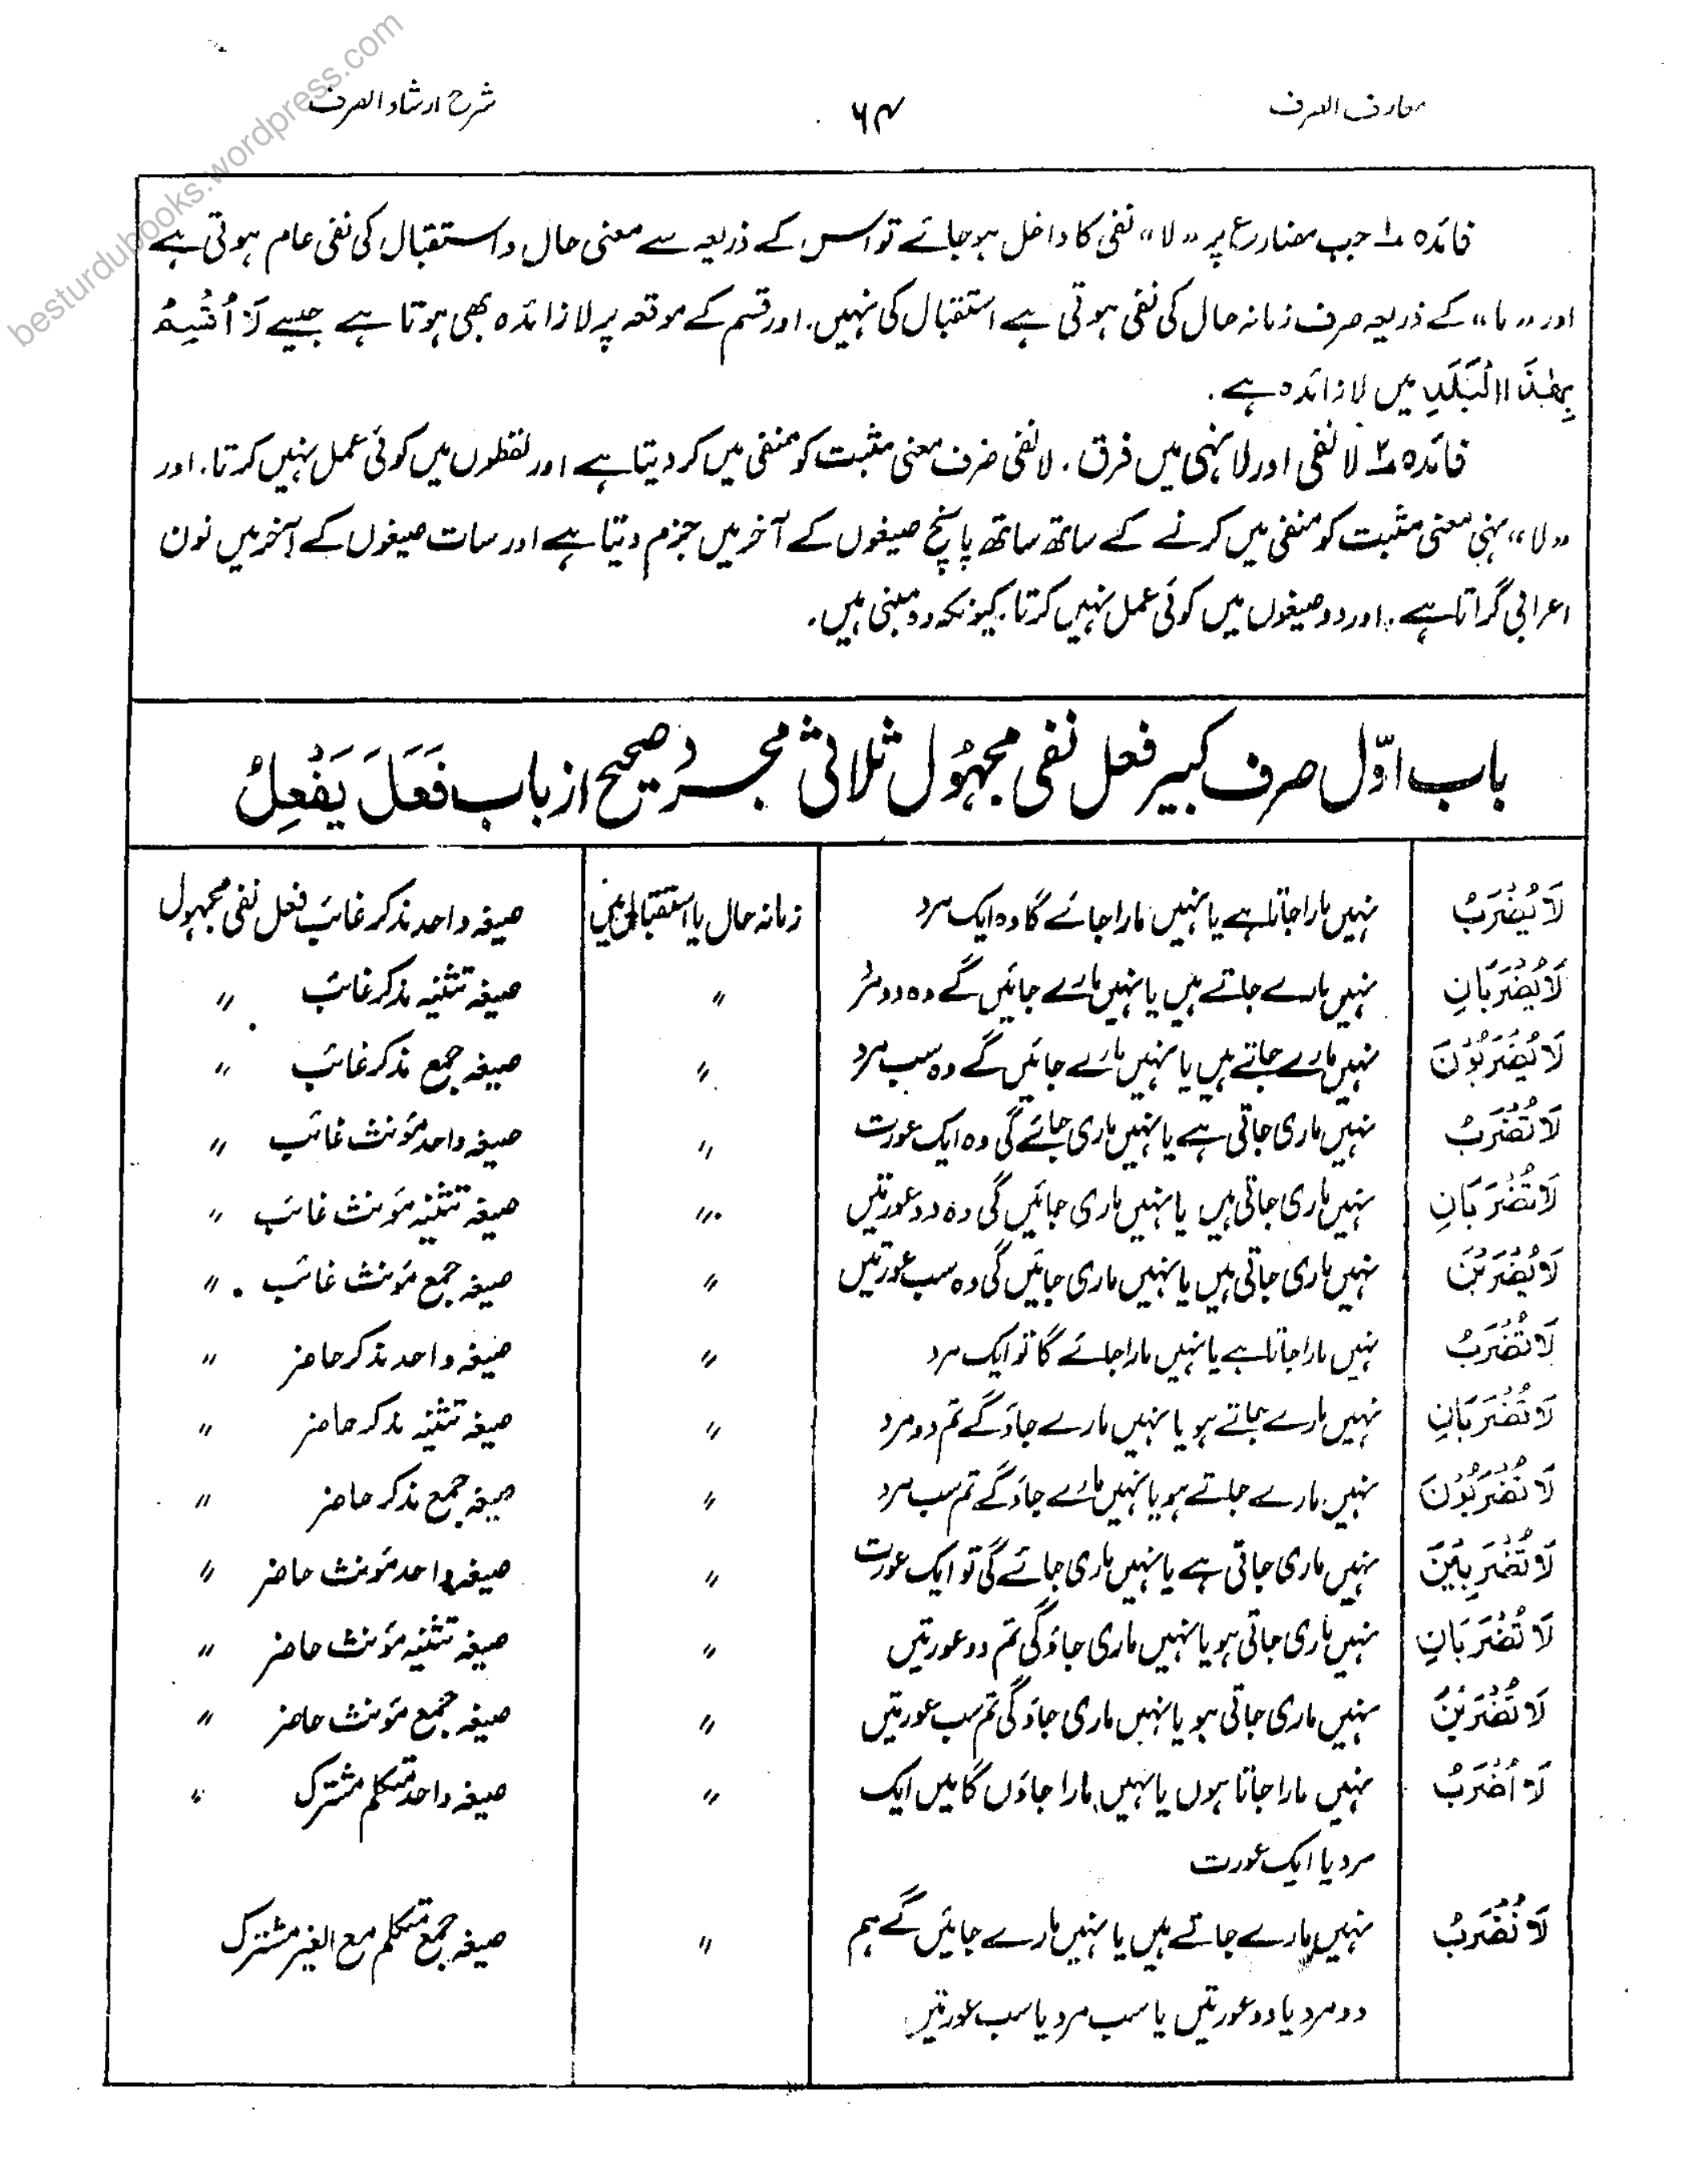 معارف الصرف ۶۴ شرح ارشاد الصرف
فائدہ ۱ جب مضارع پر ”لا“ نفی کا داخل ہو جائے تو اس کے ذریعہ سے معنی حال و استقبال کی نفی عام ہوتی ہے
اور ”ما“ کے ذریعہ صرف زمانہ حال کی نفی ہوتی ہے استقبال کی نہیں. اور قسم کے موقعہ پر لا زائدہ بھی ہوتا ہے جیسے لَا اُقْسِمُ
بِهٰذَا الْبَلَدِ میں لا زائدہ ہے.
فائدہ ۲ لا نفی اور لا نہی میں فرق. لا نفی صرف معنی مثبت کو منفی میں کر دیتا ہے اور لفظوں میں کوئی عمل نہیں کرتا. اور
”لا“ نہی معنی مثبت کو منفی میں کرنے کے ساتھ ساتھ پانچ صیغوں کے آخر میں جزم دیتا ہے اور سات صیغوں کے آخر میں نون
اعرابی گراتا ہے. اور دو صیغوں میں کوئی عمل نہیں کرتا، کیونکہ وہ مبنی ہیں.
باب اوّل صرف کبیر فعل نفی مجہول ثلاثی مجرد صحیح از باب فَعَلَ یَفْعِلُ
لَا یُضْرَبُ نہیں مارا جاتا ہے یا نہیں مارا جائے گا وہ ایک مرد زمانہ حال یا استقبال میں صیغہ واحد مذکر غائب فعل نفی مجہول
لَا یُضْرَبَانِ نہیں مارے جاتے ہیں یا نہیں مارے جائیں گے وہ دو مرد 〃 صیغہ تثنیہ مذکر غائب 〃
لَا یُضْرَبُوْنَ نہیں مارے جاتے ہیں یا نہیں مارے جائیں گے وہ سب مرد 〃 صیغہ جمع مذکر غائب 〃
لَا تُضْرَبُ نہیں ماری جاتی ہے یا نہیں ماری جائے گی وہ ایک عورت 〃 صیغہ واحد مؤنث غائب 〃
لَا تُضْرَبَانِ نہیں ماری جاتی ہیں یا نہیں ماری جائیں گی وہ دو عورتیں 〃 صیغہ تثنیہ مؤنث غائب 〃
لَا یُضْرَبْنَ نہیں ماری جاتی ہیں یا نہیں ماری جائیں گی وہ سب عورتیں 〃 صیغہ جمع مؤنث غائب 〃
لَا تُضْرَبُ نہیں مارا جاتا ہے یا نہیں مارا جائے گا تو ایک مرد 〃 صیغہ واحد مذکر حاضر 〃
لَا تُضْرَبَانِ نہیں مارے جاتے ہو یا نہیں مارے جاؤ گے تم دو مرد 〃 صیغہ تثنیہ مذکر حاضر 〃
لَا تُضْرَبُوْنَ نہیں مارے جاتے ہو یا نہیں مارے جاؤ گے تم سب مرد 〃 صیغہ جمع مذکر حاضر 〃
لَا تُضْرَبِیْنَ نہیں ماری جاتی ہے یا نہیں ماری جائے گی تو ایک عورت 〃 صیغہ واحد مؤنث حاضر 〃
لَا تُضْرَبَانِ نہیں ماری جاتی ہو یا نہیں ماری جاؤ گی تم دو عورتیں 〃 صیغہ تثنیہ مؤنث حاضر 〃
لَا تُضْرَبْنَ نہیں ماری جاتی ہو یا نہیں ماری جاؤ گی تم سب عورتیں 〃 صیغہ جمع مؤنث حاضر 〃
لَا اُضْرَبُ نہیں مارا جاتا ہوں یا نہیں مارا جاؤں گا میں ایک 〃 صیغہ واحد متکلم مشترک 〃
مرد یا ایک عورت
لَا نُضْرَبُ نہیں مارے جاتے ہیں یا نہیں مارے جائیں گے ہم 〃 صیغہ جمع متکلم مع الغیر مشترک
دو مرد یا دو عورتیں یا سب مرد یا سب عورتیں
besturdubooks.wordpress.com